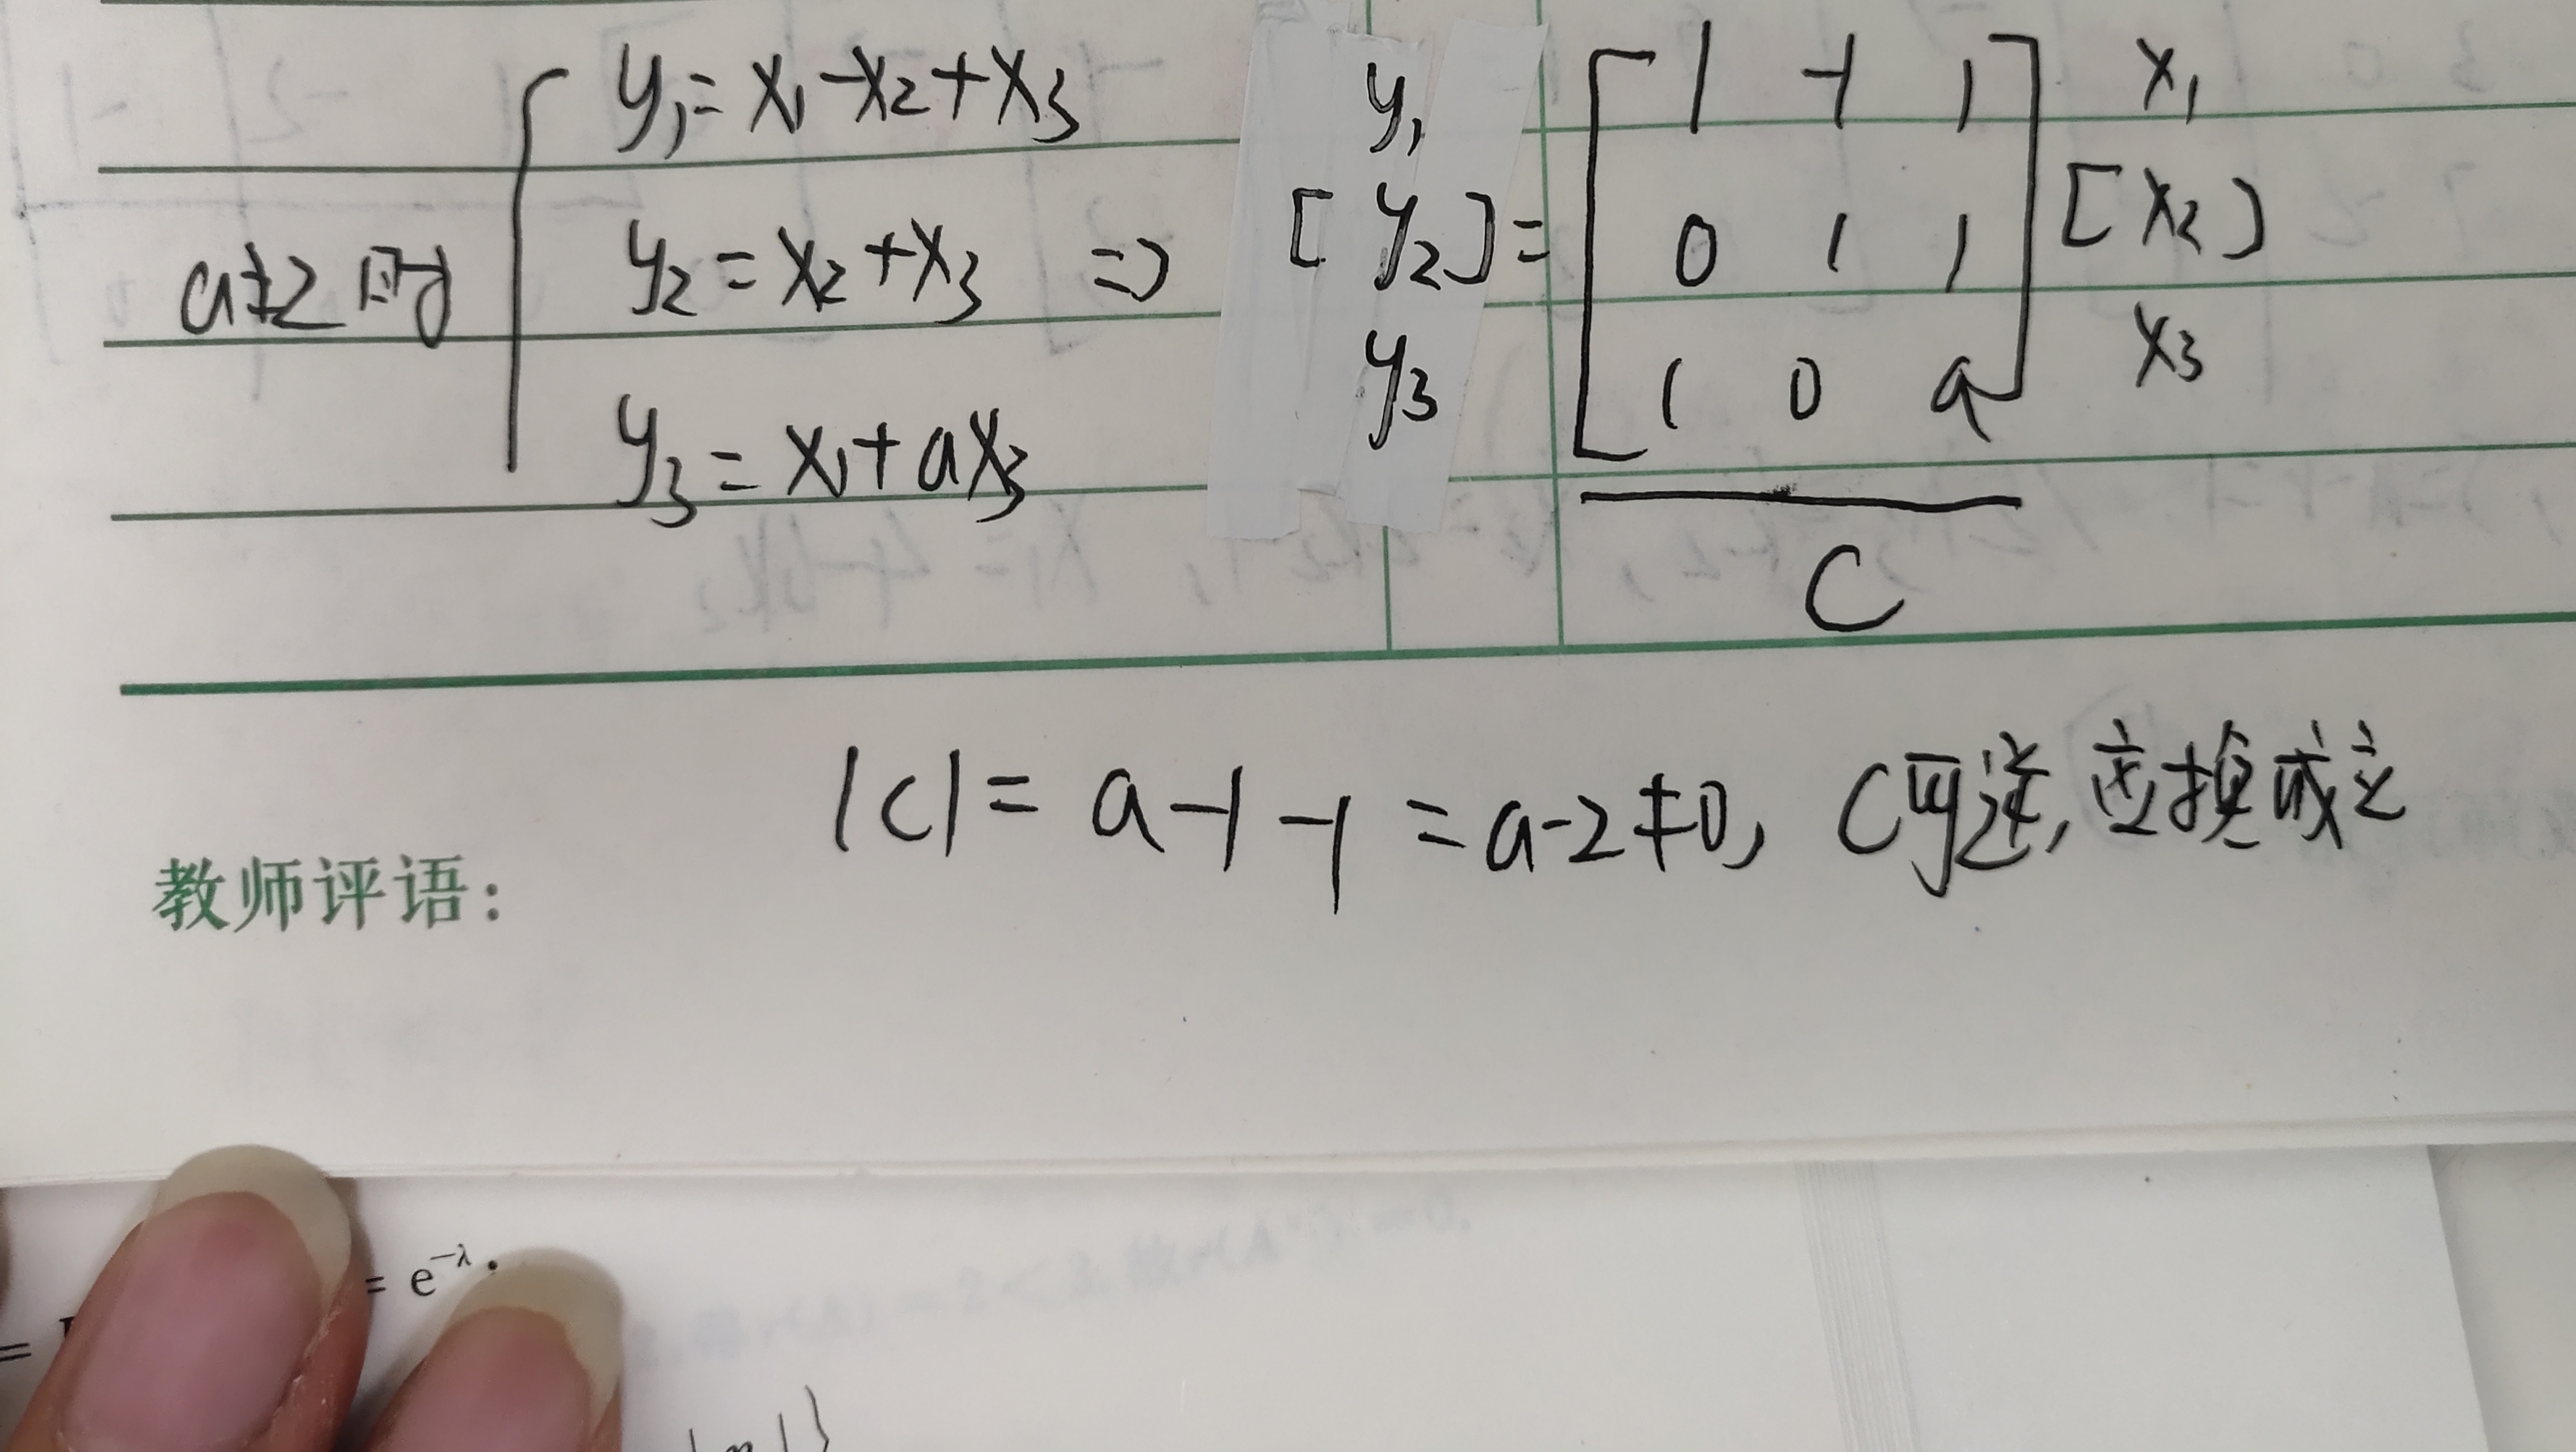 y₁ = x₁ - x₂ + x₃
a≠2时 y₂ = x₂ + x₃ ⇒
y₃ = x₁ + ax₃
y₁
[ y₂ ] =
y₃
1 -1 1
0 1 1
1 0 a
x₁
[ x₂ ]
x₃
C
|C| = a-1-1 = a-2≠0, C可逆, 变换成立
教师评语:
= e^{-λ}.
=